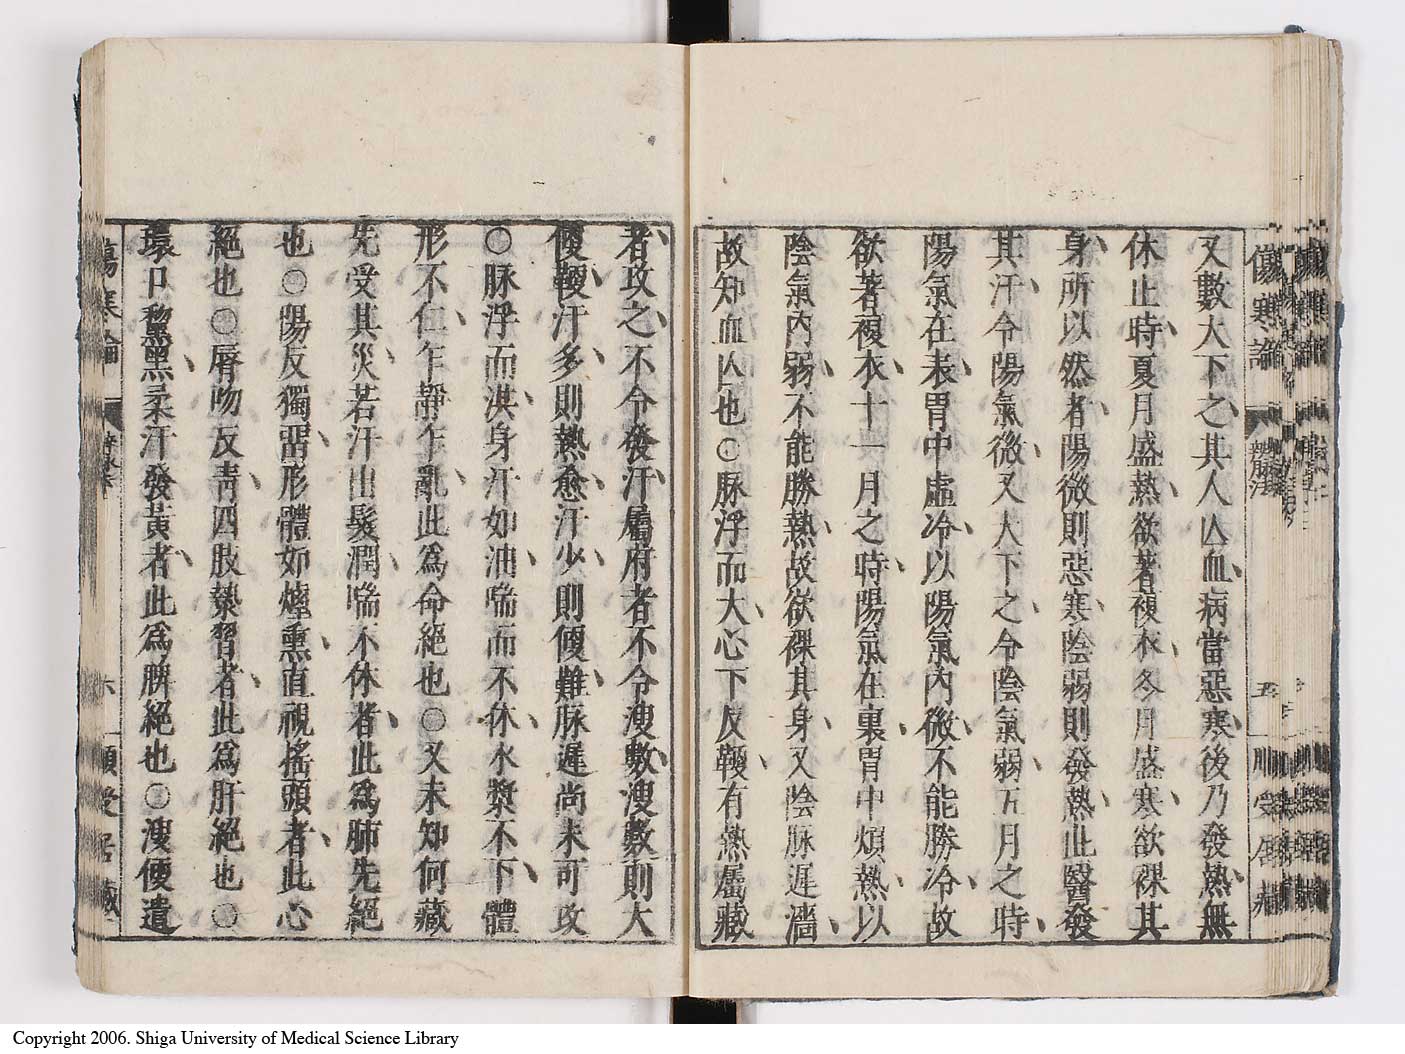 又數大下之其人亾血病當惡寒後乃發熱無
休止時夏月盛熱欲著複衣冬月盛寒欲裸其
身所以然者陽微則惡寒陰弱則發熱此醫發
其汗令陽氣微又大下之令陰氣弱五月之時
陽氣在表胃中虛冷以陽氣內微不能勝冷故
欲著複衣十一月之時陽氣在裏胃中煩熱以
陰氣內弱不能勝熱故欲裸其身又陰脉遲濇
故知血亾也〇脉浮而大心下反鞕有熱屬藏
者攻之不令發汗屬府者不令溲數溲數則大
便鞕汗多則熱愈汗少則便難脉遲尚未可攻
〇脉浮而洪身汗如油喘而不休水漿不下體
形不仁乍靜乍亂此爲命絕也〇又未知何藏
先受其災若汗出髮潤喘不休者此爲肺先絕
也〇陽反獨留形體如煙熏直視搖頭者此心
絕也〇脣吻反青四肢漐習者此爲肝絕也〇
環口黧黑柔汗發黃者此爲脾絕也〇溲便遺
傷寒論 辨脉法 五
傷寒論 六
Copyright 2006. Shiga University of Medical Science Library